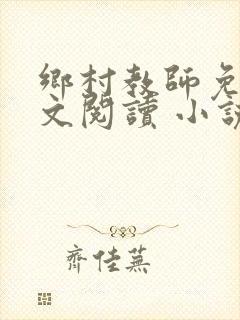 鄉村教師免
文閱讀 小說
齊佳蕪